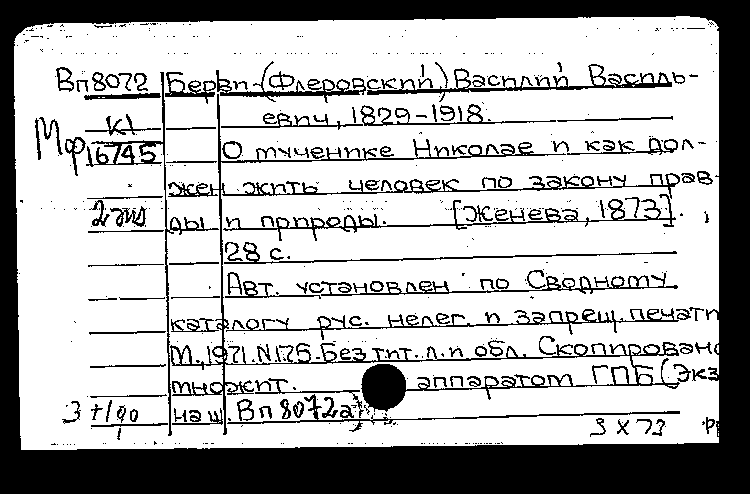 Вп8072 Берви-(Флеровский), Василий Василь-
К1 евич, 1829-1918.
Мф 16745 О мученике Николае и как дол-
жен жить человек по закону прав-
2 экз ды и природы. [Женева, 1873].,
28 с.
Авт. установлен по Сводному
каталогу рус. нелег. и запрещ. печати
М., 1971. N175. Без тит. л. и обл. Скопировано
множит. аппаратом ГПБ (Экз
наш. Вп 8072а)
3 X 73